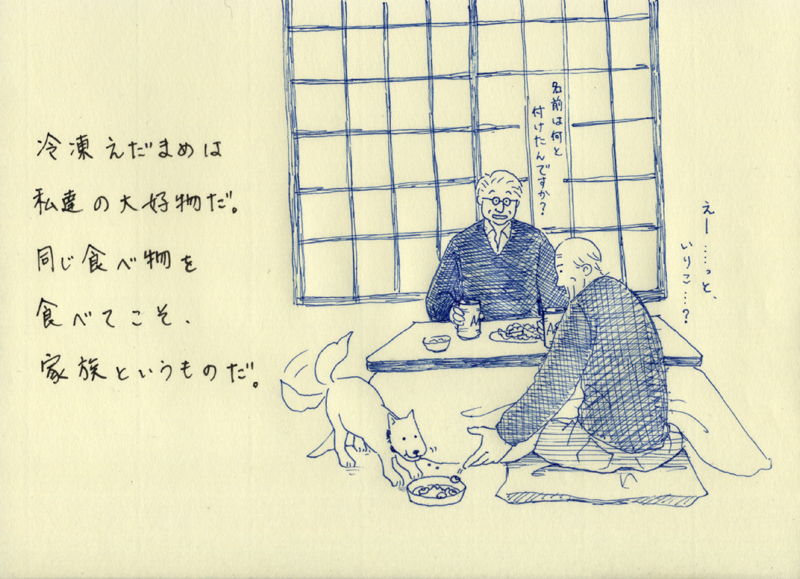 冷凍えだまめは
私達の大好物だ。
同じ食べ物を
食べてこそ、
家族というものだ。
名前は何と
付けたんですか?
えー……っと、
いりこ…?
A
A